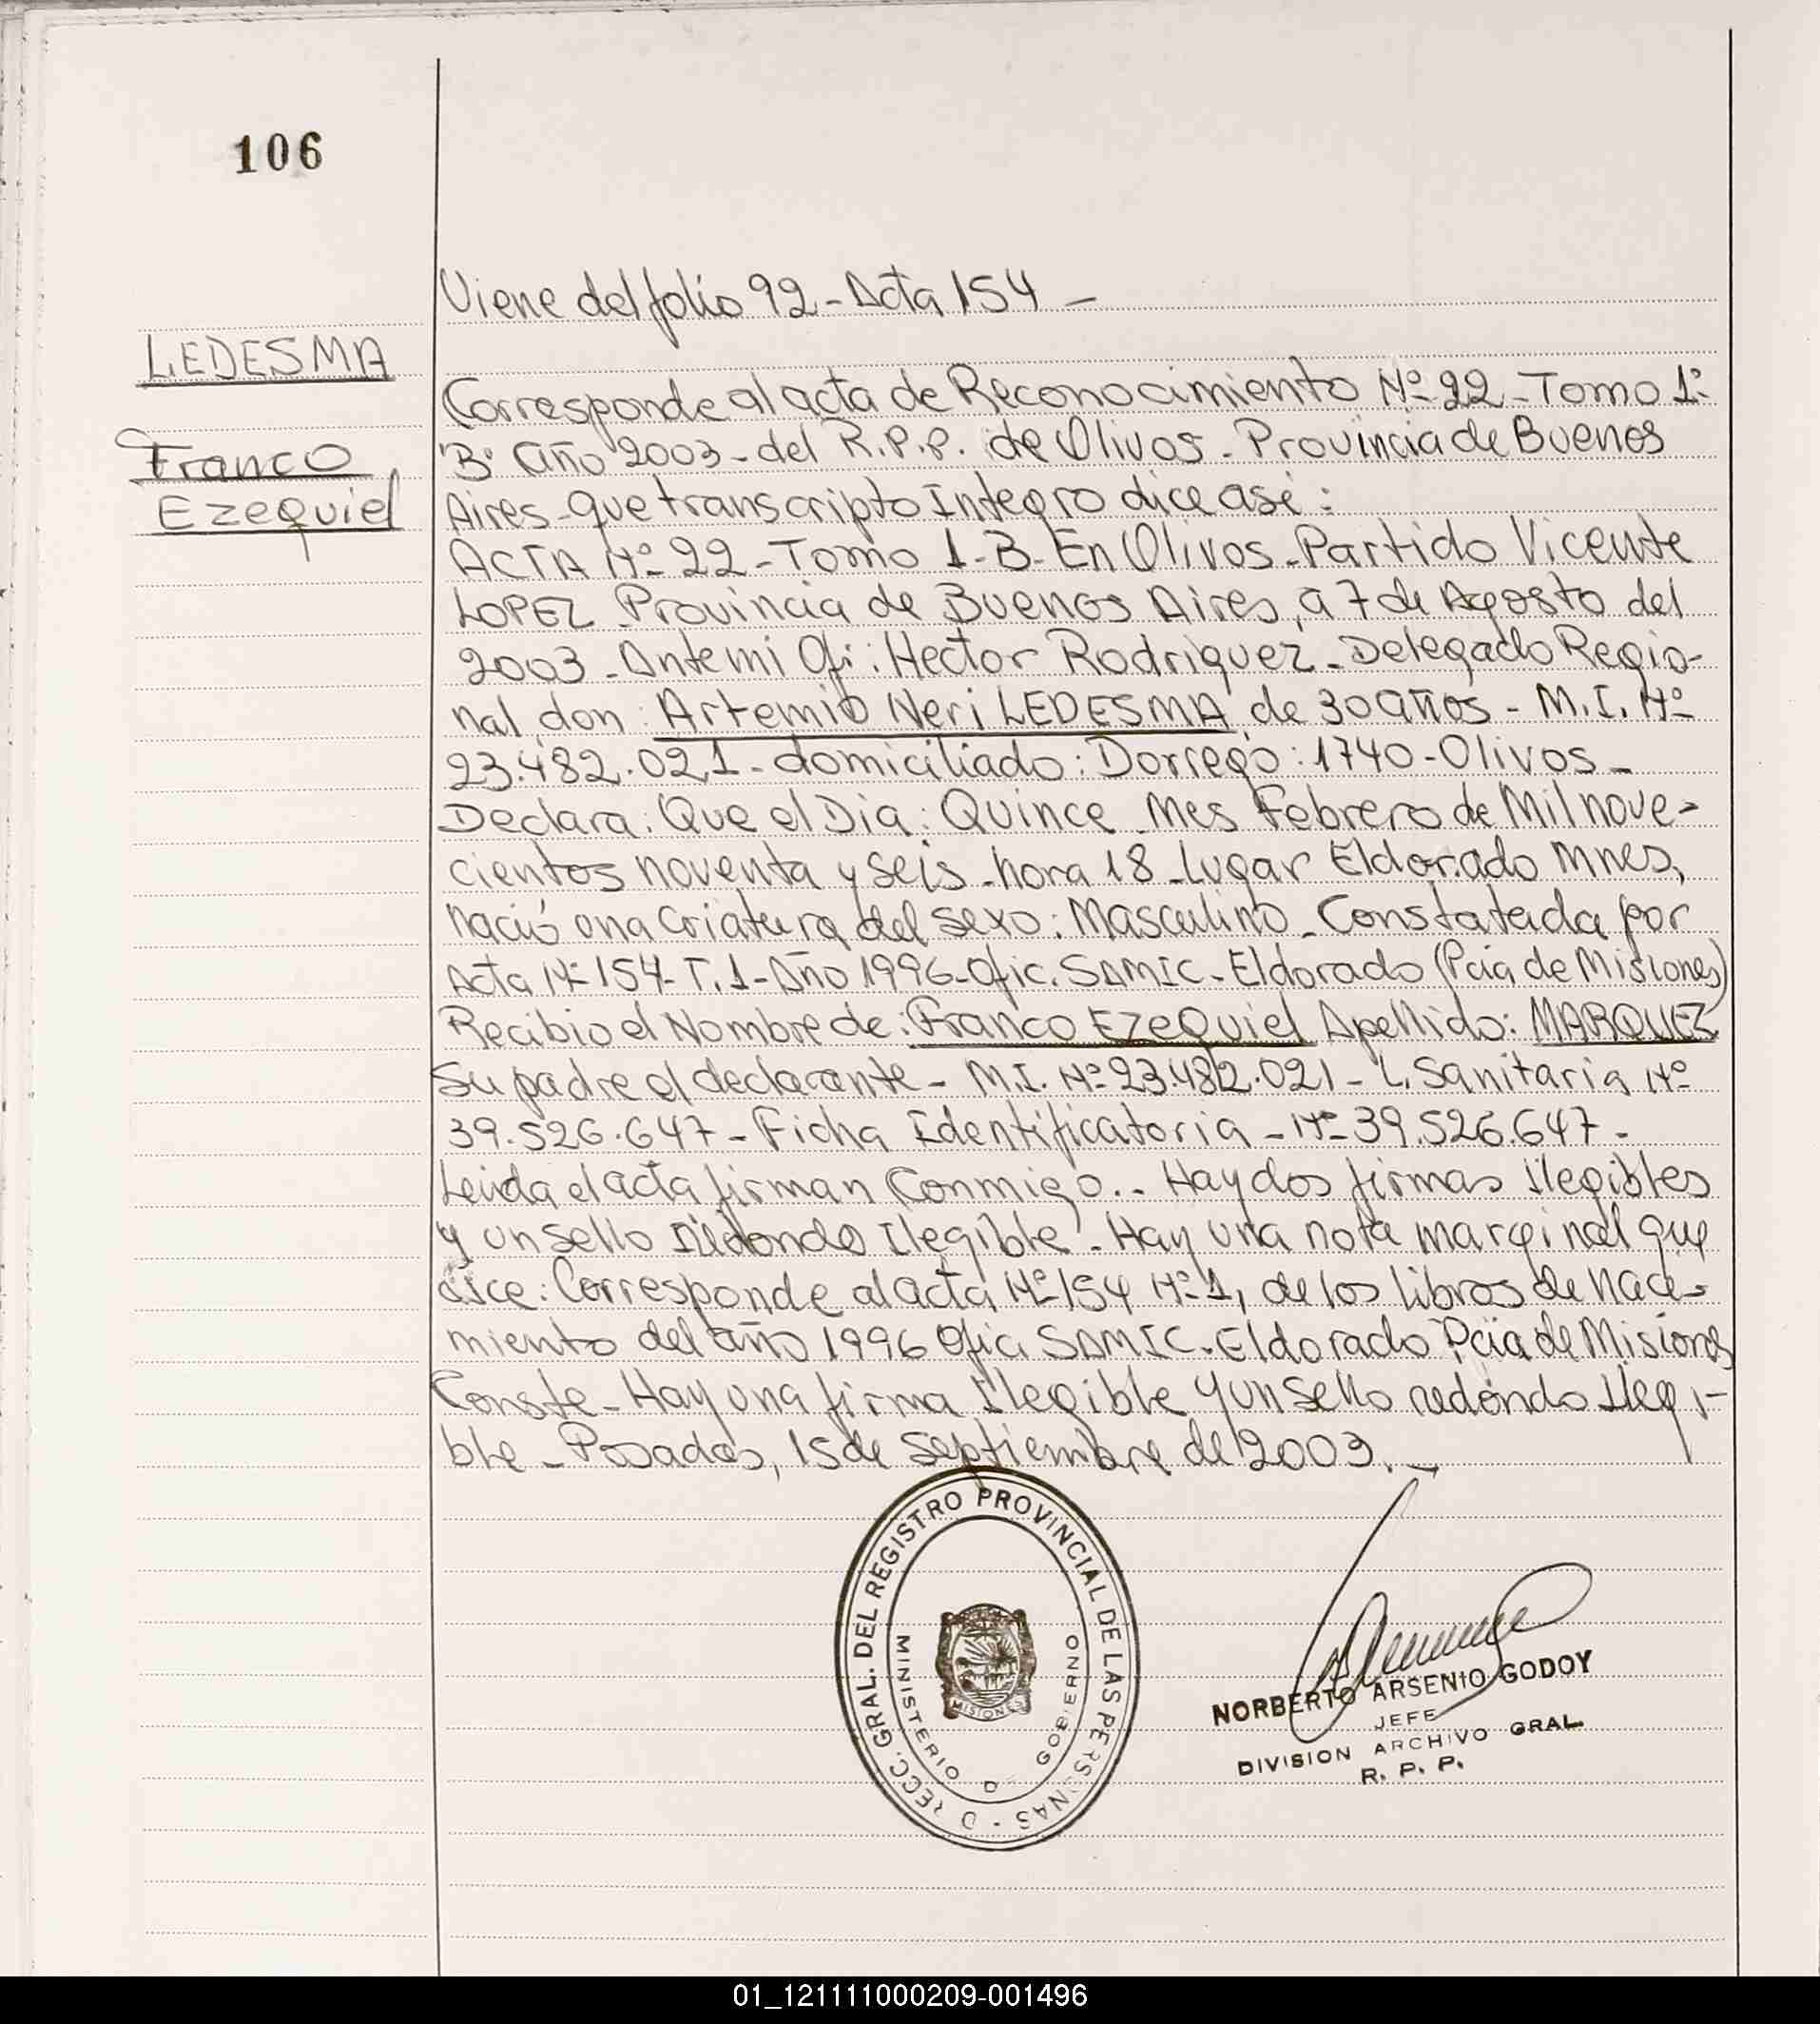 106
Viene del folio 92 - Acta 154 -
LEDESMA
Franco
Ezequiel
Corresponde al acta de Reconocimiento Nº 22 - Tomo 1º
"B" Año 2003 - del R.P.P. de Olivos - Provincia de Buenos
Aires - que transcripto Integro dice asi:
ACTA Nº 22 - Tomo 1 - B - En Olivos - Partido Vicente
LOPEZ Provincia de Buenos Aires, a 7 de Agosto del
2003 - Ante mi Ofi: Hector Rodriguez - Delegado Regio-
nal, don: Artemio Neri LEDESMA de 30 años - M.I. Nº
23.482.021 - domiciliado: Dorrego: 1740 - Olivos -
Declara: Que el Dia: Quince Mes Febrero de Mil nove-
cientos noventa y seis - hora 18 - lugar Eldorado Mnes,
nació una Criatura del sexo: Masculino - Constatada por
Acta Nº 154 - T. 1 - Año 1996 - Ofic. SAMIC - Eldorado (Pcia de Misiones)
Recibio el Nombre de: Franco Ezequiel Apellido: MARQUEZ
Su padre el declarante - M.I. Nº 23.482.021 - L. Sanitaria Nº
39.526.647 - Ficha Identificatoria - Nº 39.526.647 -
Leida el acta firman Conmigo.. Hay dos firmas Ilegibles
y un sello redondo Ilegible - Hay una nota marginal que
dice: Corresponde al acta Nº 154 Nº 1, de los libros de Naci-
miento del año 1996 Ofic SAMIC - Eldorado Pcia de Misiones
Conste - Hay una firma Ilegible y un sello redondo Ilegi-
ble - Posadas, 15 de septiembre de 2003. -
DIRECC. GRAL. DEL REGISTRO PROVINCIAL DE LAS PERSONAS
MINISTERIO DE GOBIERNO
MISIONES
NORBERTO ARSENIO GODOY
JEFE
DIVISION ARCHIVO GRAL.
R. P. P.
01_121111000209-001496